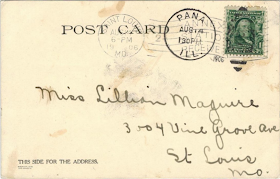 POST CARD
SAINT LOUIS
6 PM
MO.
PANA
AUG 14
130 PM
ILL.
1906
Miss Lillian Maguire
3704 Vine Grove Ave
St Louis
Mo.
THIS SIDE FOR THE ADDRESS.